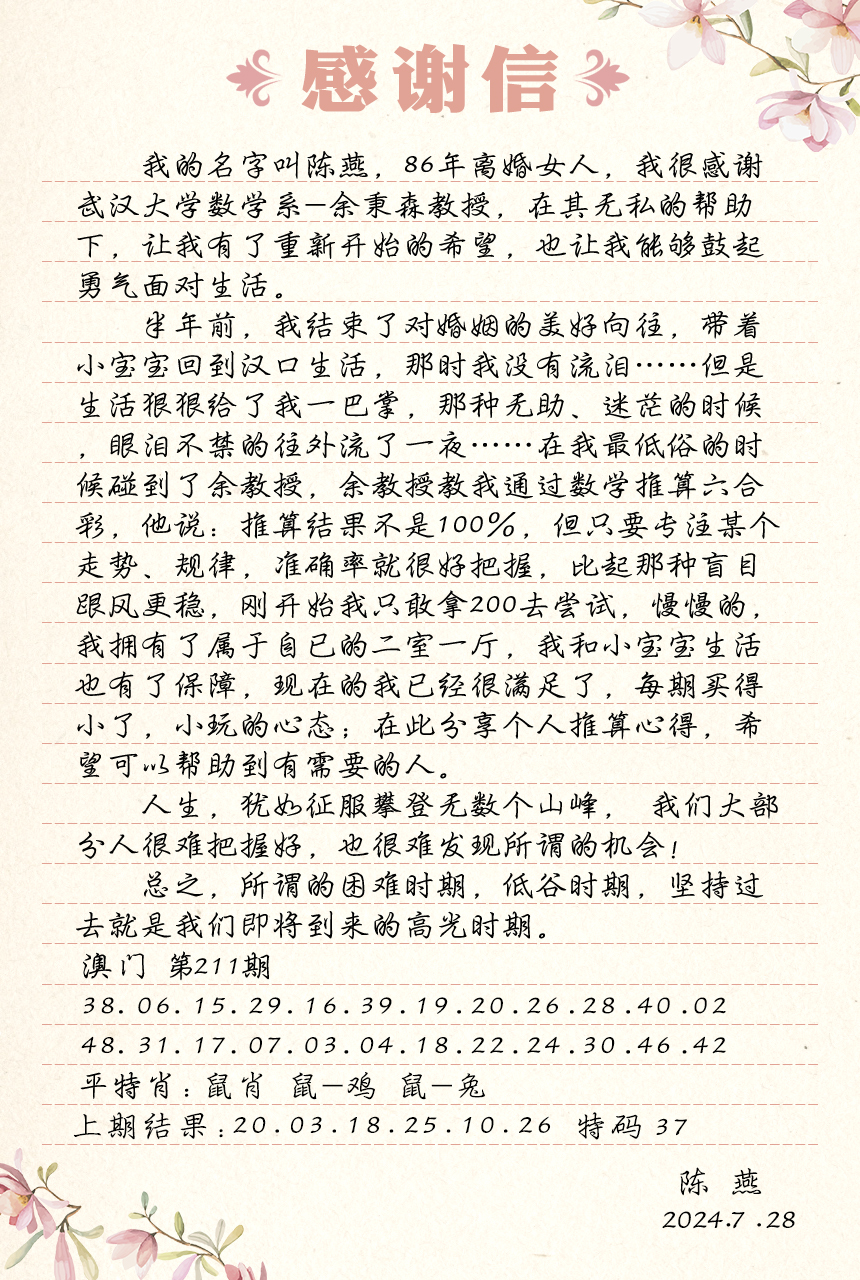 感谢信
我的名字叫陈燕，86年离婚女人，我很感谢
武汉大学数学系—余秉森教授，在其无私的帮助
下，让我有了重新开始的希望，也让我能够鼓起
勇气面对生活。
半年前，我结束了对婚姻的美好向往，带着
小宝宝回到汉口生活，那时我没有流泪……但是
生活狠狠给了我一巴掌，那种无助、迷茫的时候
，眼泪不禁的往外流了一夜……在我最低俗的时
候碰到了余教授，余教授教我通过数学推算六合
彩，他说：推算结果不是100%，但只要专注某个
走势、规律，准确率就很好把握，比起那种盲目
跟风更稳，刚开始我只敢拿200去尝试，慢慢的，
我拥有了属于自己的二室一厅，我和小宝宝生活
也有了保障，现在的我已经很满足了，每期买得
小了，小玩的心态；在此分享个人推算心得，希
望可以帮助到有需要的人。
人生，犹如征服攀登无数个山峰， 我们大部
分人很难把握好，也很难发现所谓的机会！
总之，所谓的困难时期，低谷时期，坚持过
去就是我们即将到来的高光时期。
澳门 第211期
38.06.15.29.16.39.19.20.26.28.40.02
48.31.17.07.03.04.18.22.24.30.46.42
平特肖：鼠肖 鼠—鸡 鼠—兔
上期结果：20.03.18.25.10.26 特码 37
陈 燕
2024.7.28